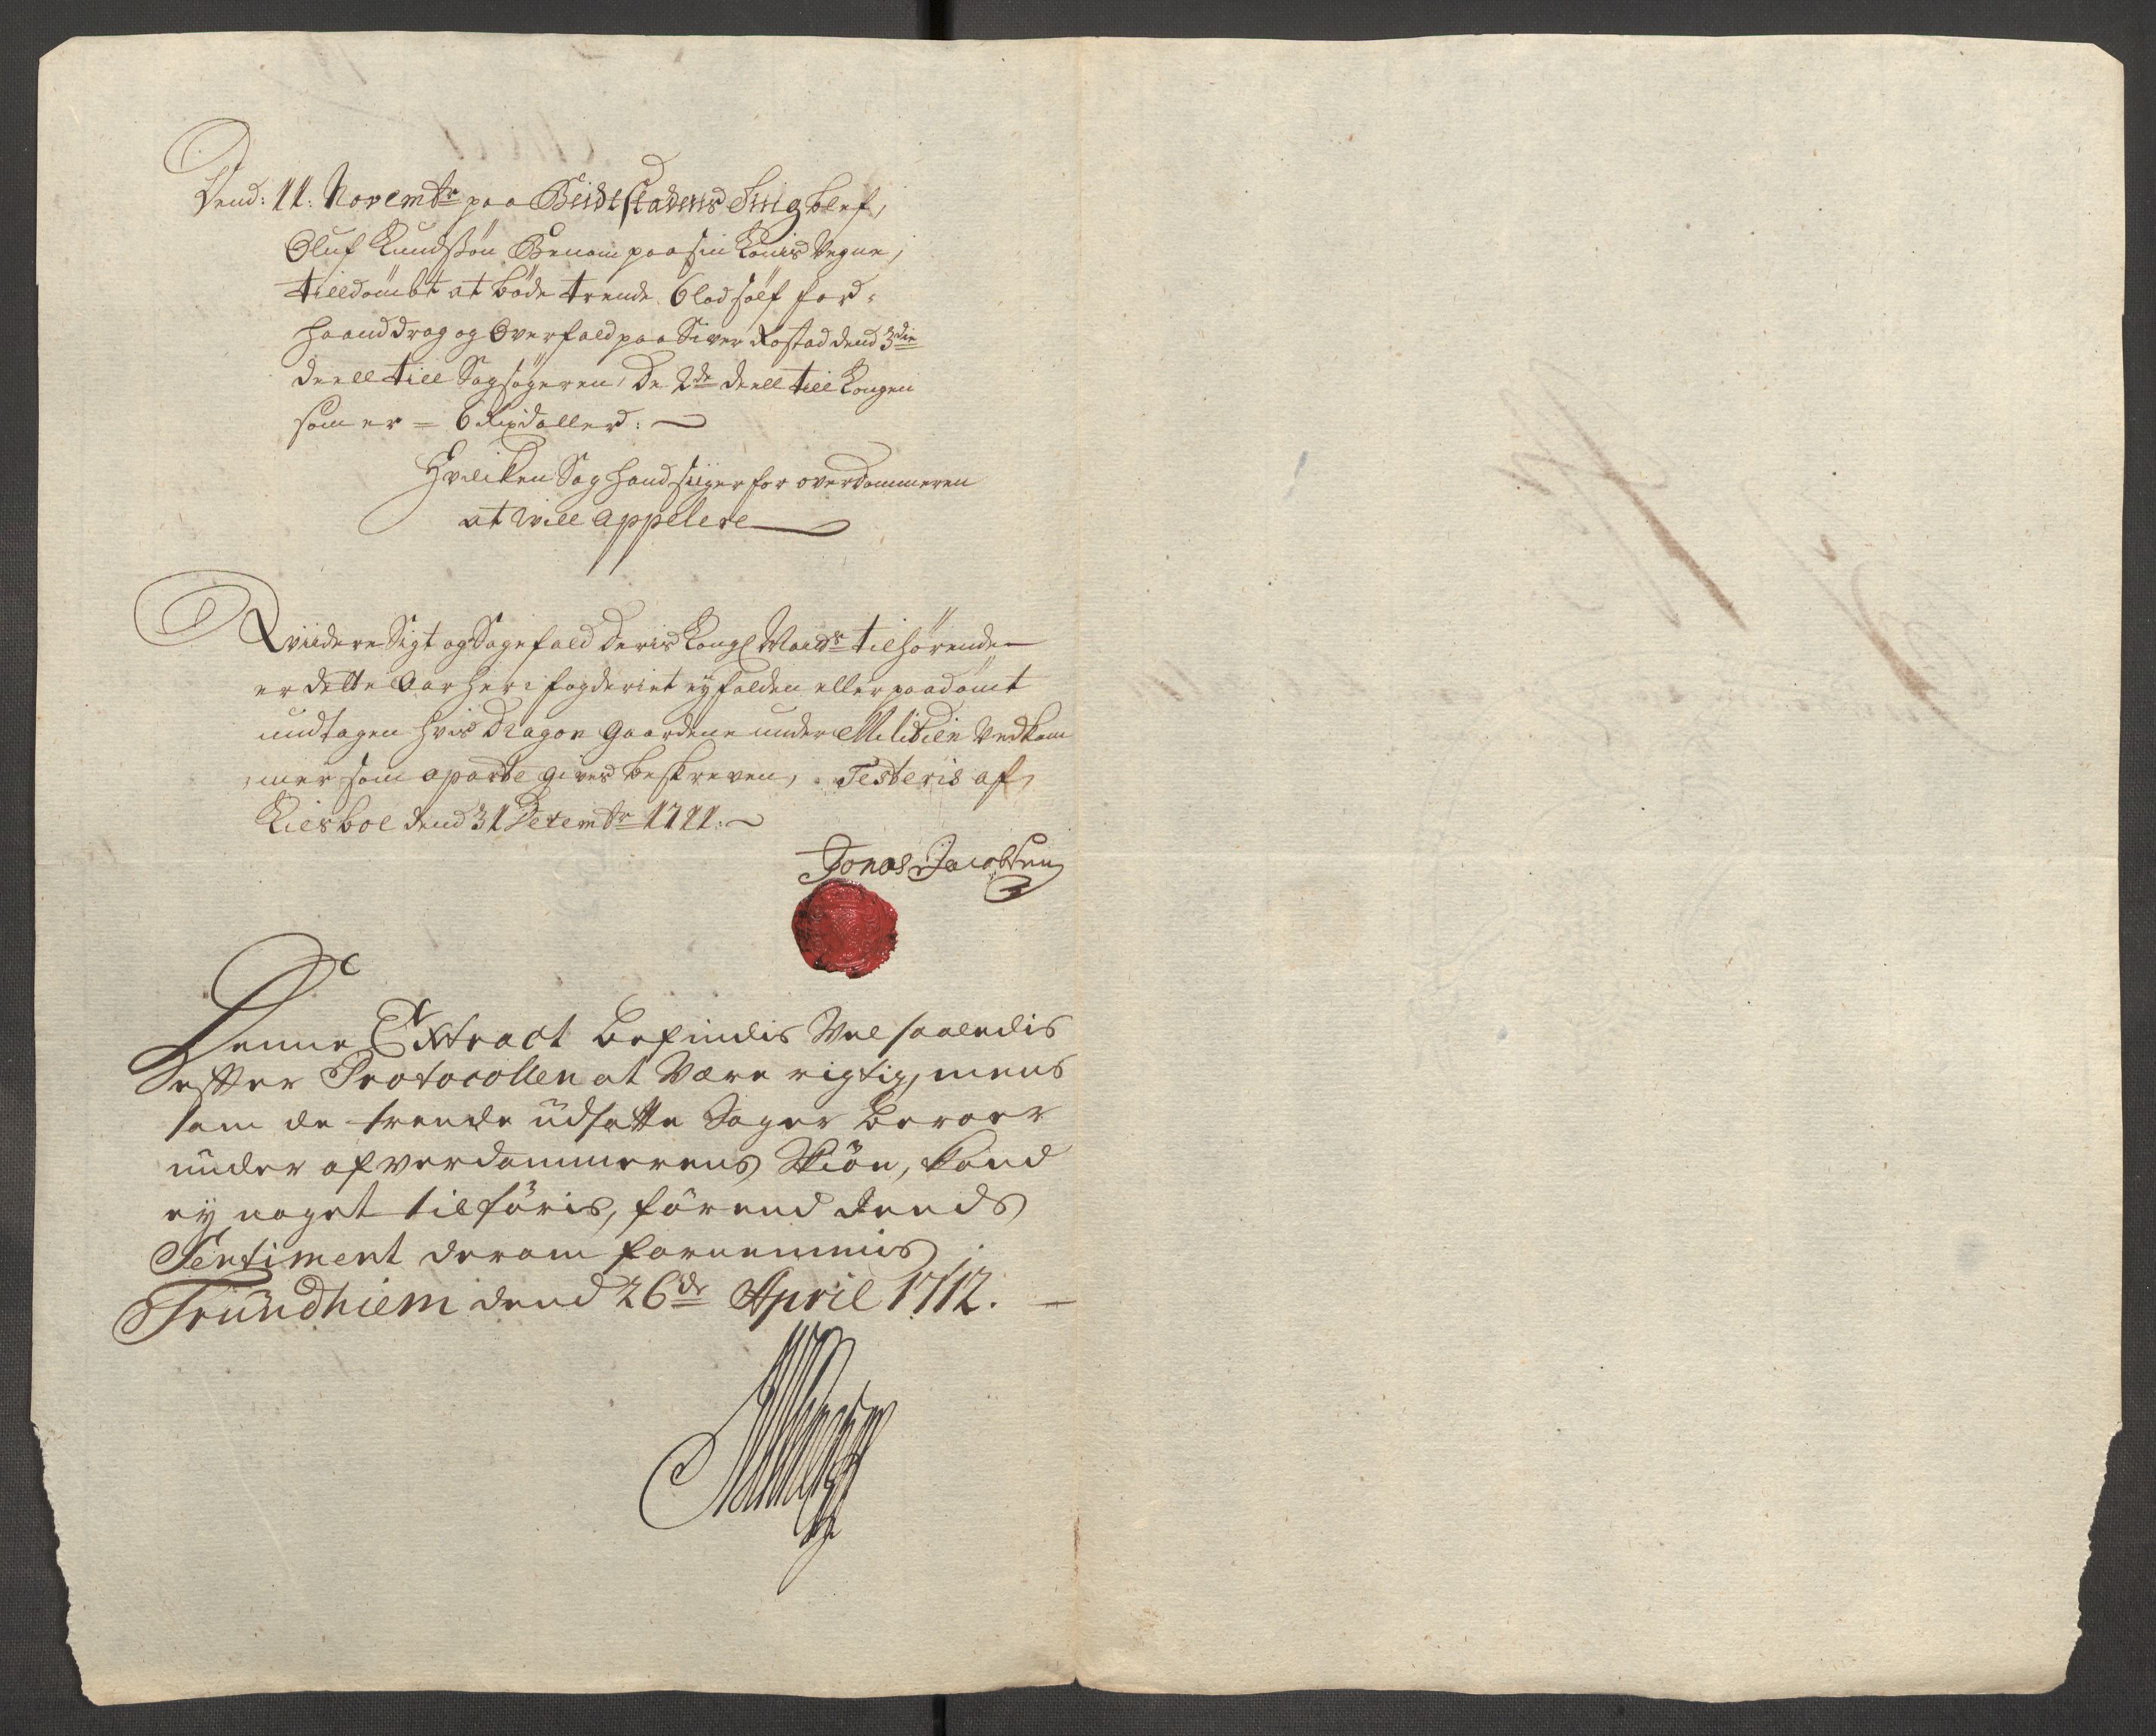 Dend: 11: Novembr paa Beidtstadens Ting blef,
Oluf Knudssøn Benom paa sin Konis Vegne,
tilldømbt at bøde trende 6 lod sølf for
haanddrag og Overfald paa Siver Rostad dend 3die
deell till Sagsøgeren, de 2de deell till Kongen
som er = 6 Rixdaller: —
Hvilcken Sag hand siiger for overdommeren
at will appelere
Viidere Sigt og Sagefald deris Kongl Maids tilhørende
er dette Aar her i fogderiet ey falden eller paadømt
undtagen hvis Dragon Gaardene under Militien Vedkom
mer som aparte gives beskreven, Testeris af,
Kiesboe dend 31 Decembr 1711:
Jonas Jacobsen
Denne Extract befindis Vel saaledis
efter Protocollen at Være rigtig, mens
som de trende udsatte Sager beroer
under ofverdommerens Skiøn, kand
ey noget tilføris, førend dends
Sentiment derom fornemmis
Trundhiem dend 26de April 1712. —